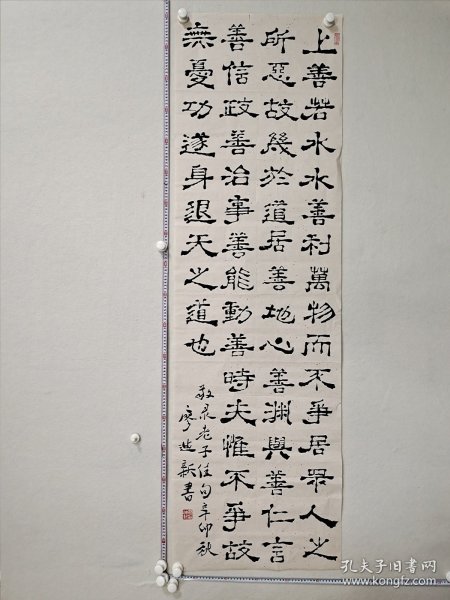 上善若水水善利萬物而不爭居眾人之
所惡故幾於道居善地心善渊與善仁言
善信政善治事善能動善時夫惟不爭故
無憂功遂身退天之道也
敬录老子佳句辛卯秋
廖新書
孔夫子旧书网
www.kongfz.com